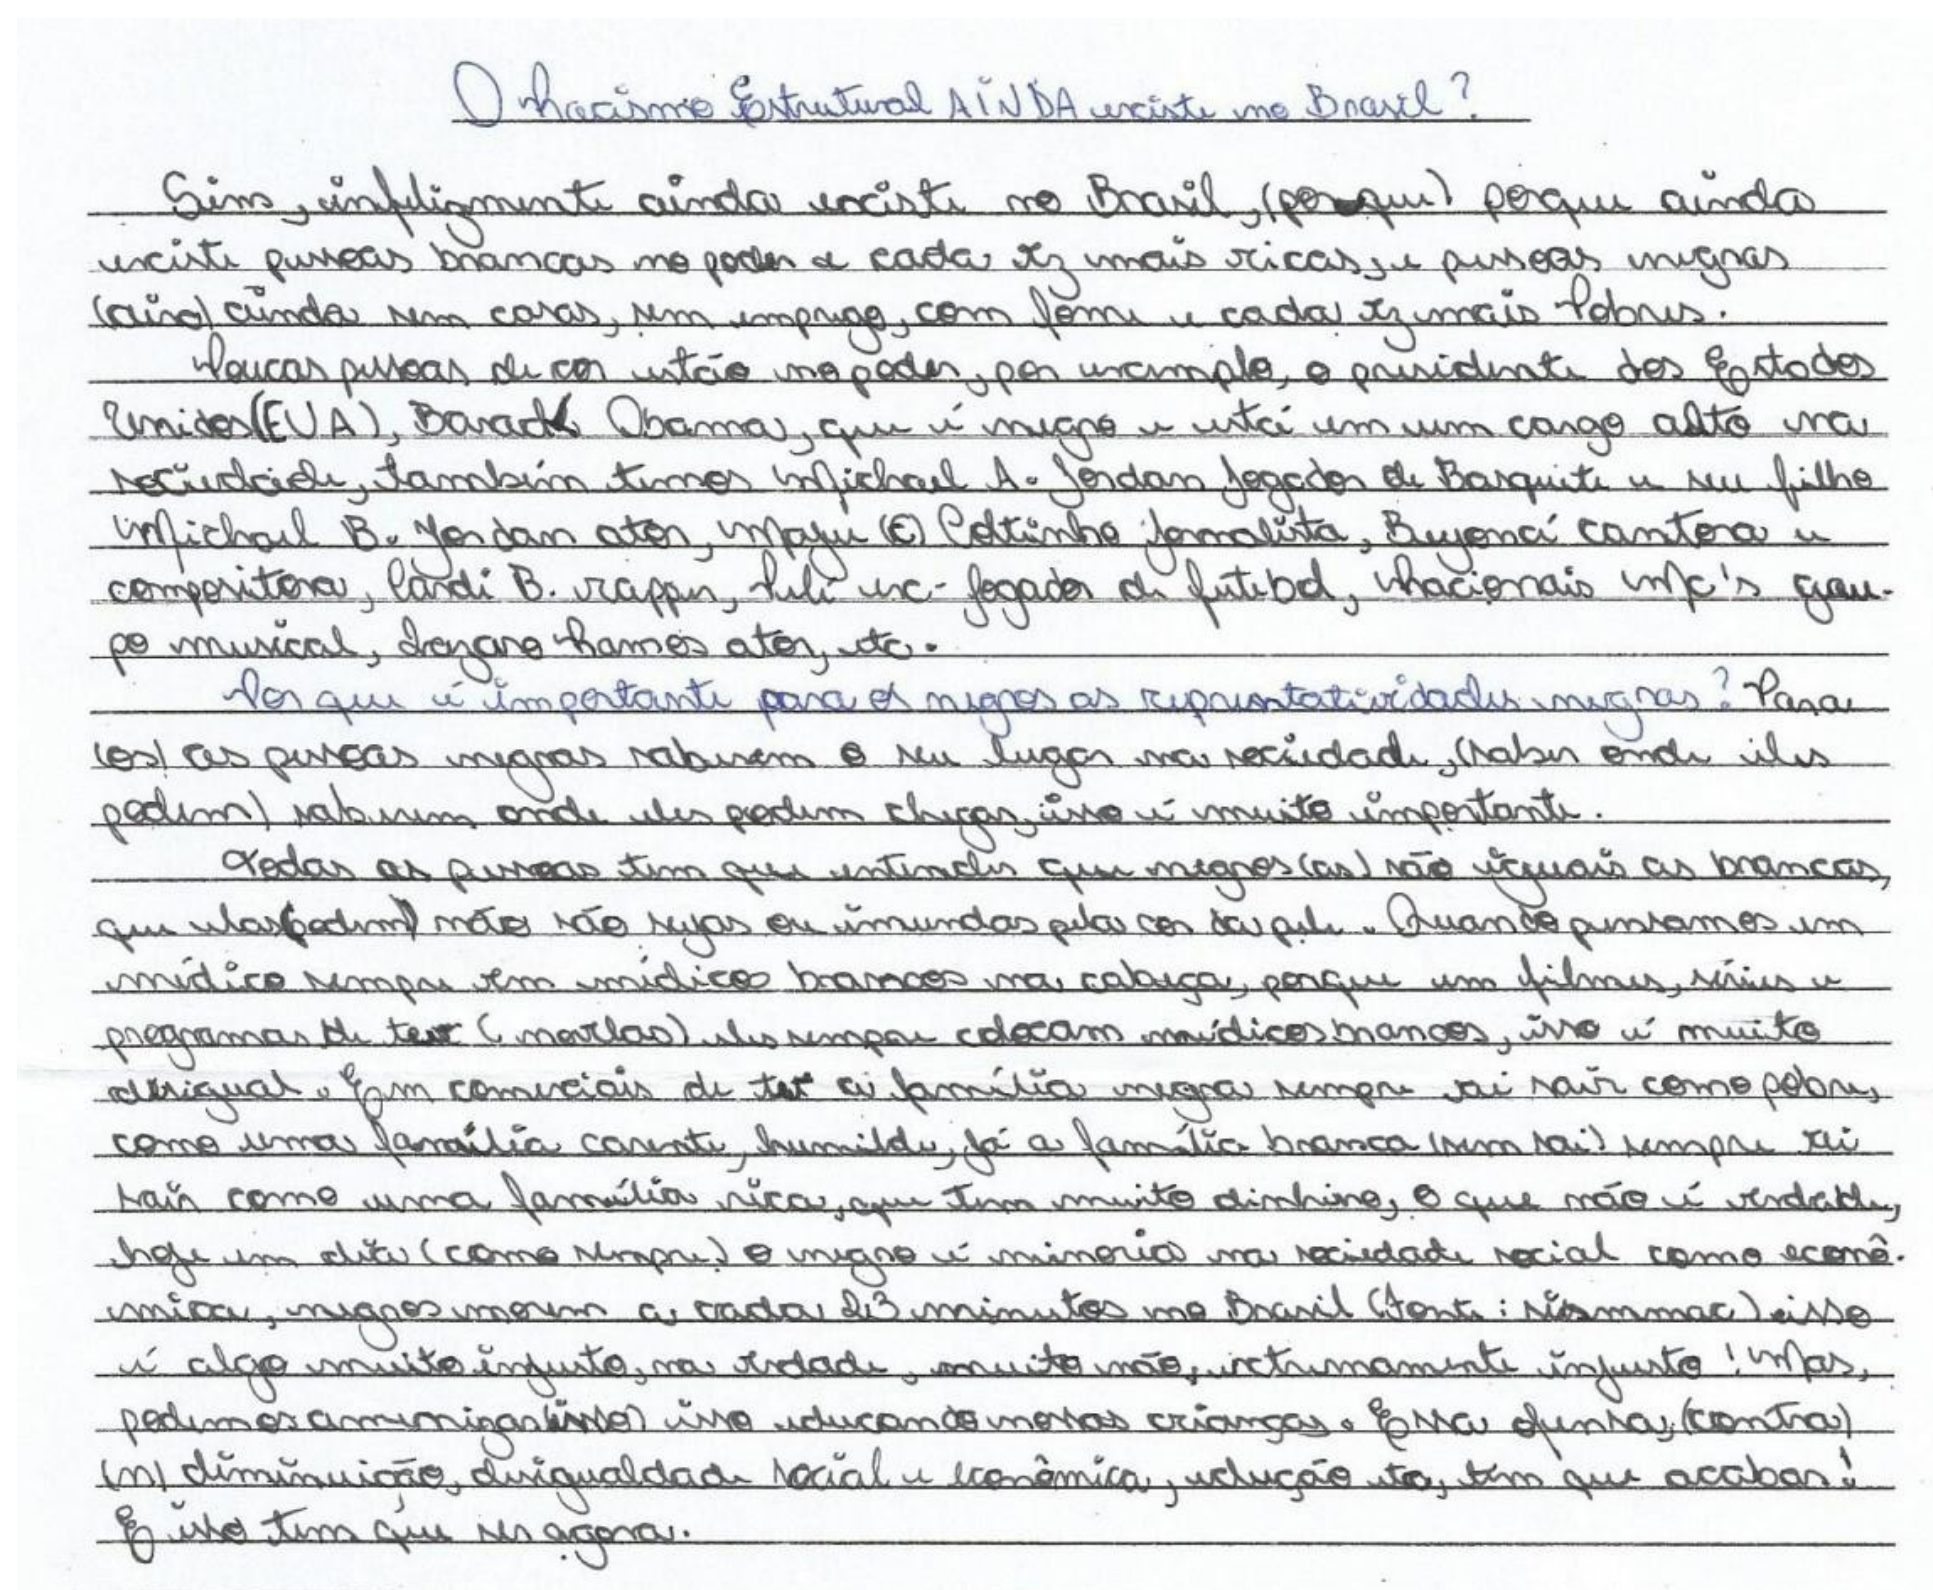 O Racismo Estrutural AINDA existe no Brasil?
Sim, infelizmente ainda existe no Brasil, (porque) porque ainda
existe pessoas brancas no poder e cada vez mais ricas, e pessoas negras
(aino) ainda sem casas, sem emprego, com fome e cada vez mais Pobres.
Poucas pessoas de cor estão no poder, por exemplo, o presidente dos Estados
Unidos (EUA), Barack Obama, que é negro e está em um cargo alto na
sociedade, também temos Michael A. Jordan Jogador de Basquete e seu filho
Michael B. Jordan ator, Maju (C) Coltinho Jornalista, Beyoncé cantora e
compositora, Cardi B. rapper, Pelé ex-jogador de futebol, Racionais Mc's gru-
po musical, Lazaro Ramos ator, etc.
Por que é importante para os negros as representatividades negras? Para
(os) as pessoas negras saberem o seu lugar na sociedade, (saber onde eles
podem) saberem onde eles podem chegar, isso é muito importante.
Todas as pessoas tem que entender que negros(as) são iguais as brancas,
que elas (podem) não são sujas ou imundas pela cor da pele. Quando pensamos em
médico sempre vem médicos brancos na cabeça, porque em filmes, séries e
programas de tev (novelas) eles sempre colocam médicos brancos, isso é muito
desigual. Em comerciais de tev a família negra sempre vai sair como pobre,
como uma família carente, humilde, já a família branca (sem sai) sempre vai
sair como uma família rica, que tem muito dinheiro, o que não é verdade,
hoje em dia (como sempre) o negro é minoria na sociedade social como econô-
mica, negros morem a cada 23 minutos no Brasil (Fonte: sismmac) isso
é algo muito injusto, na verdade, muito não, extremamente injusto! Mas,
podemos amenizar (isso) isso educando nossas crianças. Essa ofensa, (contra)
(n) diminuição, desigualdade social e econômica, edução etc, tem que acabar!
E isso tem que ser agora.